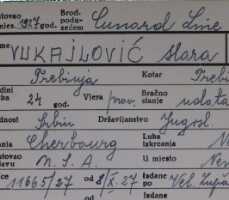 utovao mjes. 1927 god. Brod. poda- sećem Cunard Line
me VUKAJLOVIĆ Stara
Trebinja Kotar Trebi
24 god. Vjera prav. Bračno stanje udata
nost Srbin Državljanstvo Jugosl.
Cherbourg Luka Izkrcanja Ne
utovao U. S. A. U mjesto Ne
ice 11665/27 od 3/X.27 izdane po Vel. Župa